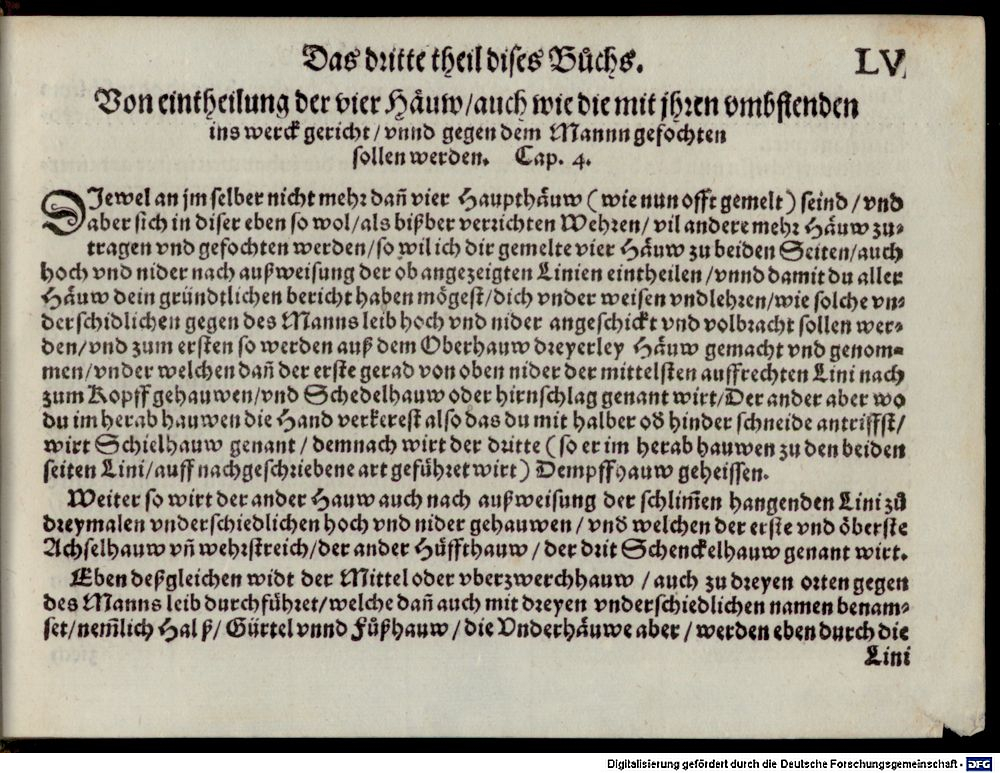 Das dritte theil dises Bůchs. LV
Von eintheilung der vier Häuw/auch wie die mit jhren vmbstenden
ins werck gericht/vnnd gegen dem Mannn gefochten
sollen werden. Cap. 4.
DJewel an jm selber nicht mehr dañ vier Haupthäuw (wie nun offt gemelt) seind/vnd
aber sich in diser eben so wol/als bißher verrichten Wehren/vil andere mehr Häuw zu⸗
tragen vnd gefochten werden/so wil ich dir gemelte vier Häuw zu beiden Seiten/auch
hoch vnd nider nach außweisung der ob angezeigten Linien eintheilen/vnnd damit du aller
Häuw dein gründtlichen bericht haben mögest/dich vnder weisen vnd lehren/wie solche vn⸗
derschidlichen gegen des Manns leib hoch vnd nider angeschickt vnd volbracht sollen wer⸗
den/vnd zum ersten so werden auß dem Oberhauw dreyerley Häuw gemacht vnd genom⸗
men/vnder welchen dañ der erste gerad von oben nider der mittelsten auffrechten Lini nach
zum Kopff gehauwen/vnd Schedelhauw oder hirnschlag genant wirt/Der ander aber wo
du im herab hauwen die Hand verkerest also das du mit halber od̄ hinder schneide antriffst/
wirt Schielhauw genant/demnach wirt der dritte (so er im herab hauwen zu den beiden
seiten Lini/auff nachgeschriebene art geführet wirt) Dempffhauw geheissen.
Weiter so wirt der ander Hauw auch nach außweisung der schlim̄en hangenden Lini zů
dreymalen vnderschiedlichen hoch vnd nider gehauwen/vnd̄ welchen der erste vnd öberste
Achselhauw vn̄ wehrstreich/der ander Hüffthauw/der drit Schenckelhauw genant wirt.
Eben deßgleichen widt der Mittel oder vberzwerchhauw/auch zu dreyen orten gegen
des Manns leib durchführet/welche dañ auch mit dreyen vnderschiedlichen namen benam⸗
set/nem̄lich Halß/Gürtel vnnd Fůßhauw/die Vnderhäuwe aber/werden eben durch die
Lini
Digitalisierung gefördert durch die Deutsche Forschungsgemeinschaft - DFG